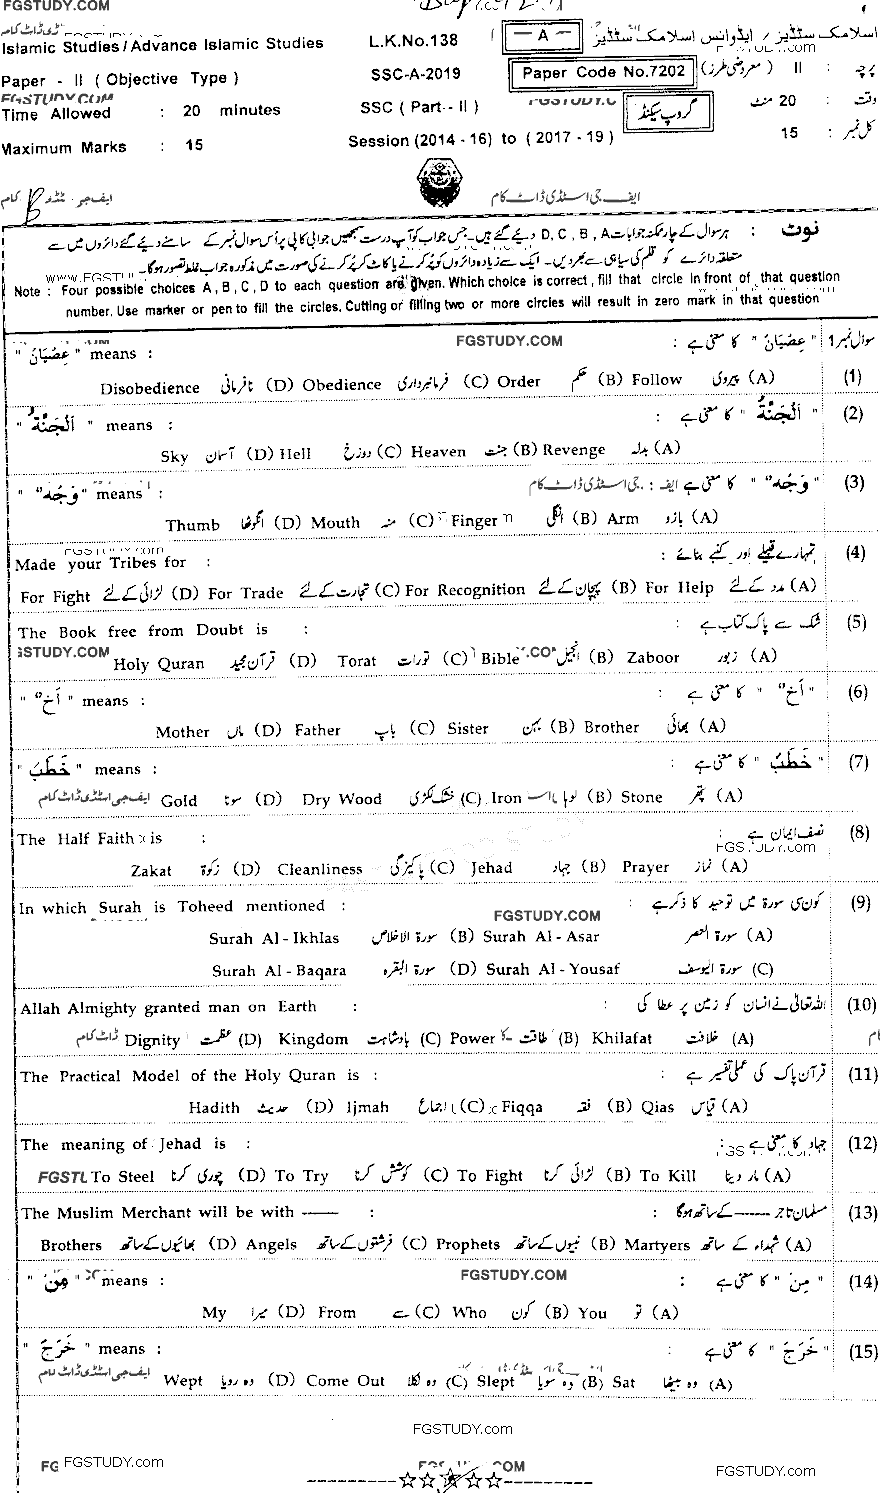 FGSTUDY.COM
اسلامک سٹڈیز / ایڈوانس اسلامک سٹڈیز — A — L.K.No.138 Islamic Studies/Advance Islamic Studies
پرچہ : II (معروضی طرز) Paper Code No.7202 SSC-A-2019 Paper - II ( Objective Type )
FGSTUDY.COM
وقت : 20 منٹ گروپ سیکنڈ SSC ( Part - II ) Time Allowed : 20 minutes
کل نمبر : 15 Session (2014 - 16) to ( 2017 - 19 ) Maximum Marks : 15
ایف جی اسٹڈی ڈاٹ کام
نوٹ : ہر سوال کے چار ممکنہ جوابات D, C, B, A دیئے گئے ہیں۔ جس جواب کو آپ درست سمجھیں جوابی کاپی پر اُس سوال نمبر کے سامنے دیئے گئے دائروں میں سے
متعلقہ دائرے کو قلم کی سیاہی سے بھر دیں۔ ایک سے زیادہ دائروں کو پُر کرنے یا کاٹ کر پُر کرنے کی صورت میں مذکورہ جواب غلط تصور ہوگا۔
Note : Four possible choices A , B , C , D to each question are given. Which choice is correct , fill that circle in front of that question
number. Use marker or pen to fill the circles. Cutting or filling two or more circles will result in zero mark in that question
FGSTUDY.COM
سوال نمبر 1 " عِصْيَانٌ " کا معنی ہے : " عِصْيَانٌ " means :
(1) (A) پیروی Follow (B) حکم Order (C) فرمانبرداری Obedience (D) نافرمانی Disobedience
(2) " اَلْجَنَّةُ " کا معنی ہے : " اَلْجَنَّةُ " means :
(A) بدلہ Revenge (B) جنت Heaven (C) دوزخ Hell (D) آسمان Sky
(3) " وَجْهٌ " کا معنی ہے : ایف جی اسٹڈی ڈاٹ کام " وَجْهٌ " means :
(A) بازو Arm (B) انگلی Finger (C) منہ Mouth (D) انگوٹھا Thumb
(4) تمہارے قبیلے اور کنبے بنائے : Made your Tribes for :
(A) مدد کے لئے For Help (B) پہچان کے لئے For Recognition (C) تجارت کے لئے For Trade (D) لڑائی کے لئے For Fight
(5) شک سے پاک کتاب ہے : The Book free from Doubt is :
(A) زبور Zaboor (B) انجیل Bible (C) تورات Torat (D) قرآن مجید Holy Quran
(6) " أَخٌ " کا معنی ہے : " أَخٌ " means :
(A) بھائی Brother (B) بہن Sister (C) باپ Father (D) ماں Mother
(7) " حَطَبٌ " کا معنی ہے : " حَطَبٌ " means :
(A) پتھر Stone (B) لوہا Iron (C) خشک لکڑی Dry Wood (D) سونا Gold ایف جی اسٹڈی ڈاٹ کام
(8) نصف ایمان ہے : The Half Faith is :
FGSTUDY.com
(A) نماز Prayer (B) جہاد Jehad (C) پاکیزگی Cleanliness (D) زکوٰۃ Zakat
(9) کون سی سورۃ میں توحید کا ذکر ہے : In which Surah is Toheed mentioned :
FGSTUDY.COM
(A) سورۃ العصر Surah Al - Asar (B) سورۃ الاخلاص Surah Al - Ikhlas
(C) سورۃ الیوسف Surah Al - Yousaf (D) سورۃ البقرہ Surah Al - Baqara
(10) اللہ تعالیٰ نے انسان کو زمین پر عطا کی : Allah Almighty granted man on Earth :
(A) خلافت Khilafat (B) طاقت Power (C) بادشاہت Kingdom (D) عظمت Dignity ڈاٹ کام
(11) قرآن پاک کی عملی تفسیر ہے : The Practical Model of the Holy Quran is :
(A) قیاس Qias (B) فقہ Fiqqa (C) اجماع Ijmah (D) حدیث Hadith
(12) جہاد کا معنی ہے : The meaning of Jehad is :
(A) مار دینا To Kill (B) لڑائی کرنا To Fight (C) کوشش کرنا To Try (D) چوری کرنا To Steel
(13) مسلمان تاجر ------ کے ساتھ ہوگا : The Muslim Merchant will be with —— :
(A) شہداء کے ساتھ Martyers (B) نبیوں کے ساتھ Prophets (C) فرشتوں کے ساتھ Angels (D) بھائیوں کے ساتھ Brothers
FGSTUDY.COM
(14) " مِنْ " کا معنی ہے : " مِنْ " means :
(A) تو You (B) کون Who (C) سے From (D) میرا My
(15) " خَرَجَ " کا معنی ہے : " خَرَجَ " means :
(A) وہ بیٹھا Sat (B) وہ سویا Slept (C) وہ نکلا Come Out (D) وہ رویا Wept ایف جی اسٹڈی ڈاٹ کام
FGSTUDY.com
FGSTUDY.com
FGSTUDY.com